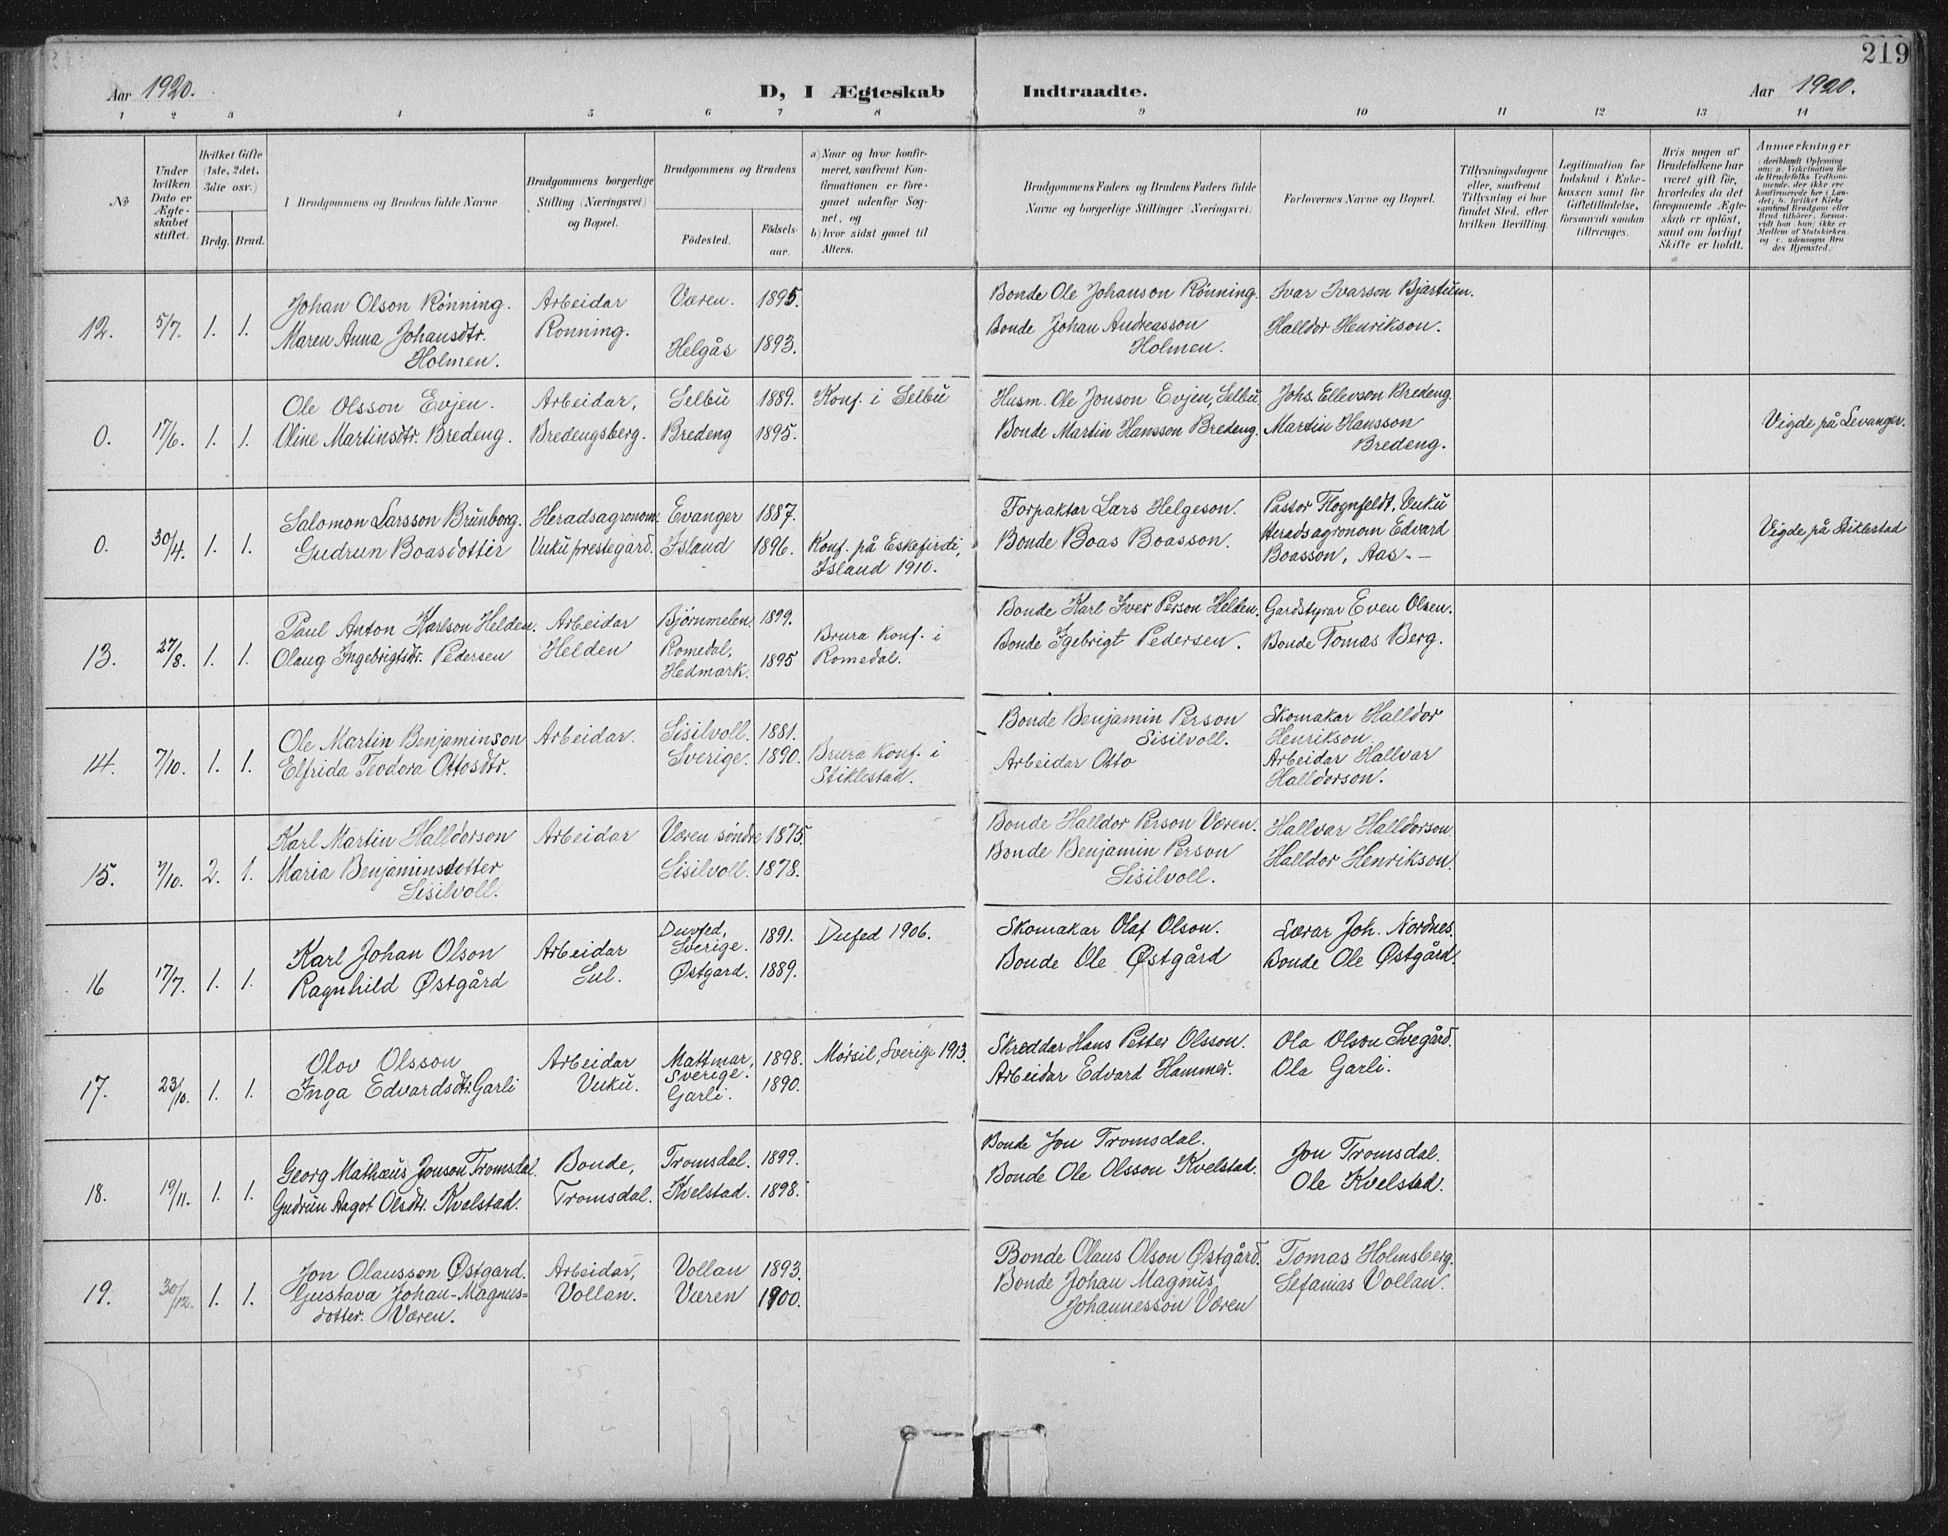 219
Aar 1920.
D, I Ægteskab
Indtraadte.
Aar 1920.
1 2 3 4 5 6 7 8 9 10 11 12 13 14
№
Under
hvilken
Dato er
Ægte-
skabet
stiftet.
Hvilket Gifte
(1ste, 2det,
3die osv.)
Brdg. Brud.
Brudgommens og Brudens fulde Navne
Brudgommens borgerlige
Stilling (Næringsvei)
og Bopæl.
Brudgommens og Brudens
Födested.
Födsels-
aar.
a) Naar og hvor konfir-
meret, samfremt Kon-
firmationen er fore-
gaaet udenfor Sog-
net, og
b) hvor sidst gaaet til
Alters.
Brudgommens Faders og Brudens Faders fulde
Navne og borgerlige Stillinger (Næringsvei)
Forlovernes Navne og Bopæl.
Tillysningsdagene
eller, saafremt
Tillysning ei har
fundet Sted, efter
hvilken Bevilling.
Legitimation for
Indskud i Enke-
kassen samt for
Giftetilladelse,
forsaavidt saadan
tiltrænges.
Hvis nogen af
Brudefolkene har
været gift för,
hvorledes da det
foregaaende Ægte-
skab er oplöst,
samt om lovligt
Skifte er holdt.
Anmærkninger
12. 5/7. 1. 1.
Johan Olson Rönning.
Maren Anna Johansdtr.
Holmen.
Arbeidar
Ronning.
Væren. 1895.
Helgås 1893.
Bonde Ole Johanson Rönning.
Bonde Johan Andreasson
Holmen.
Ivar Ivarson Bjartum.
Halldor Henrikson.
0. 17/6. 1. 1.
Ole Olsson Evjen.
Oline Martinsdtr. Bredeng.
Arbeidar,
Bredengsberg.
Selbu 1889.
Bredeng 1895.
Konf. i Selbu
Husm. Ole Jonson Evjen, Selbu
Bonde Martin Hansson Bredeng.
Johs. Ellevson Bredeng
Martin Hansson
Bredeng.
Vigde på Levanger.
0. 30/4. 1. 1.
Salomon Larsson Brunborg.
Gudrun Boasdottir
Heradsagronom.
Vuku prestegard.
Evanger 1887.
Island 1896.
Konf. på Eskefirdi,
Island 1910.
Forpaktar Lars Helgeson.
Bonde Boas Boasson.
Pastor Hognfeldt, Vuku
Heradsagronom Edvard
Boasson, Aas. -
Vigde på Stiklestad
13. 27/8. 1. 1.
Paul Anton Karlson Helden.
Olaug Ingebrigtsdtr. Pedersen
Arbeidar
Helden
Bjørnmelen 1899.
Romedal,
Hedmark. 1895
Brura Konf. i
Romedal.
Bonde Karl Iver Person Helden.
Bonde Igebrigt Pedersen.
Gardstyrar Even Olsen.
Bonde Tomas Berg.
14. 7/10. 1. 1.
Ole Martin Benjaminson
Elfrida Teodora Ottosdtr.
Arbeidar
Sisilvoll. 1881.
Sverige. 1890.
Brura Konf. i
Stiklestad.
Bonde Benjamin Person
Sisilvoll.
Arbeidar Otto
Skomakar Halldor
Henrikson.
Arbeidar Hallvar
Halldorson.
15. 7/10. 2. 1.
Karl Martin Halldorson
Maria Benjaminsdotter
Sisilvoll.
Arbeidar
Væren søndre 1875.
Sisilvoll. 1878.
Bonde Halldor Person Væren.
Bonde Benjamin Person
Sisilvoll.
Hallvar Halldorson
Halldor Henrikson.
16 17/7. 1. 1.
Karl Johan Olson
Ragnhild Østgård
Arbeidar
Sul.
Duvfed,
Sverige. 1891.
Østgard. 1889.
Dufed 1906.
Skomakar Olaf Olson.
Bonde Ole Østgård
Lærar Joh. Nordnes.
Bonde Ole Østgård.
17. 23/10. 1. 1.
Olov Olsson
Inga Edvardsdtr. Garli
Arbeidar
Vuku.
Mattmar, 1898.
Sverige.
Garli. 1890.
Mörsil, Sverige 1913.
Skreddar Hans Petter Olsson.
Arbeidar Edvard Hammer.
Ola Olson Svegård.
Ola Garli.
18. 19/11. 1. 1.
Georg Mathæus Jonson Tromsdal.
Gudrun Aagot Olsdtr. Kvelstad.
Bonde,
Tromsdal.
Tromsdal. 1899.
Kvelstad. 1898.
Bonde Jon Tromsdal.
Bonde Ole Olsson Kvelstad.
Jon Tromsdal.
Ole Kvelstad.
19. 30/12. 1. 1.
Jon Olausson Østgard.
Gustava Johan-Magnus-
dotter. Væren.
Arbeidar,
Vollan.
Vollan 1893.
Væren 1900.
Bonde Olaus Olson Østgård.
Bonde Johan Magnus
Johannesson Væren
Tomas Holmsberg.
Sefanias Vollan.